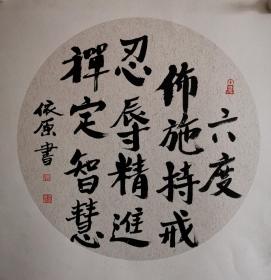 六度
佈施持戒
忍辱精進
禪定智慧
依原書